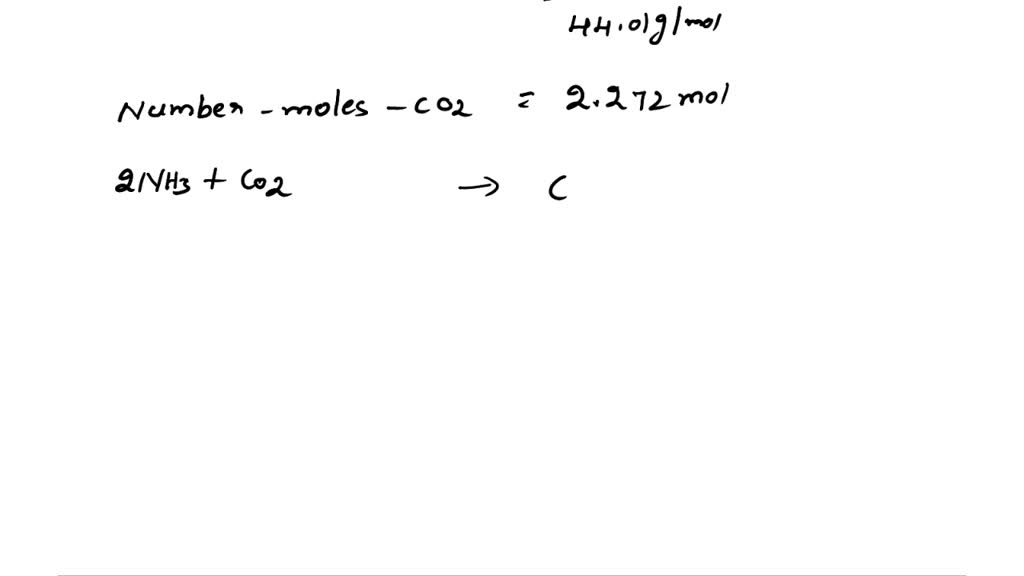 44.01g/mol
Number - moles - CO2 = 2.272 mol
2NH3 + CO2 → C